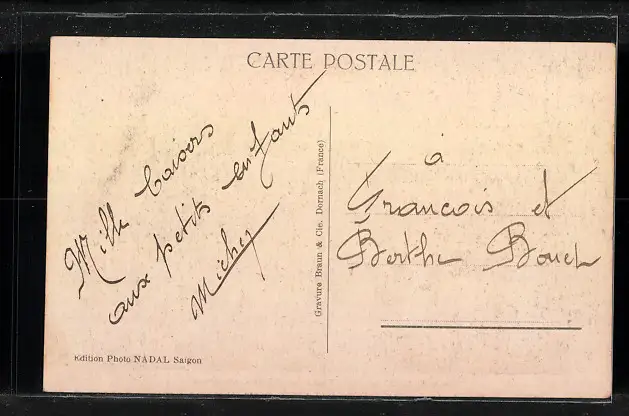 CARTE POSTALE
Mille baisers
aux petits enfants
Michey
à
François et
Berthe Bouch
Gravure Braun & Cie. Dornach (France)
Edition Photo NADAL Saigon